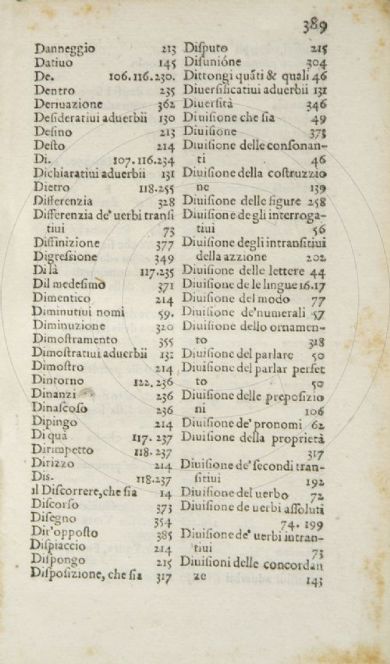 389
Danneggio 213
Datiuo 145
De. 106.116.230.
Dentro 235
Deriuazione 362
Desideratiui aduerbii 130
Desino 213
Desto 214
Di. 107.116.234
Dichiaratiui aduerbii 131
Dietro 118.255
Differenzia 328
Differenzia de' uerbi transi
tiui 73
Diffinizione 377
Digressione 349
Di là 117.235
Dil medesimo 371
Dimentico 214
Diminutiui nomi 59.
Diminuzione 320
Dimostramento 355
Dimostratiui aduerbii 132
Dimostro 214
Dintorno 122.236
Dinanzi 236
Dinascoso 236
Dipingo 214
Di qua 117.237
Dirimpetto 118.237
Dirizzo 214
Dis. 118.237
il Discorrere, che sia 14
Discorso 373
Disegno 354
Dit'opposto 385
Dispiaccio 214
Dispongo 215
Disposizione, che sia 317
Disputo 215
Disunióne 304
Dittongi quãti & quali 46
Diuersificatiui aduerbii 131
Diuersità 346
Diuisione che sia 49
Diuisione 373
Diuisione delle consonan-
ti 46
Diuisione della costruzzio
ne 139
Diuisione delle figure 258
Diuisione de gli interroga-
tiui 56
Diuisione degli intransitiui
della azzione 202
Diuisione delle lettere 44
Diuisione de le lingue 16.17
Diuisione del modo 77
Diuisione de'numerali 57
Diuisione dello ornamen-
to 318
Diuisione del parlare 50
Diuisione del parlar perfet
to 50
Diuisione delle preposizio
ni 106
Diuisione de' pronomi 62
Diuisione della proprietà
317
Diuisione de' secondi tran-
sitiui 192
Diuisione del uerbo 72
Diuisione de uerbi assoluti
74. 199
Diuisione de' uerbi intran-
tiui 73
Diuisioni delle concordan
ze 143